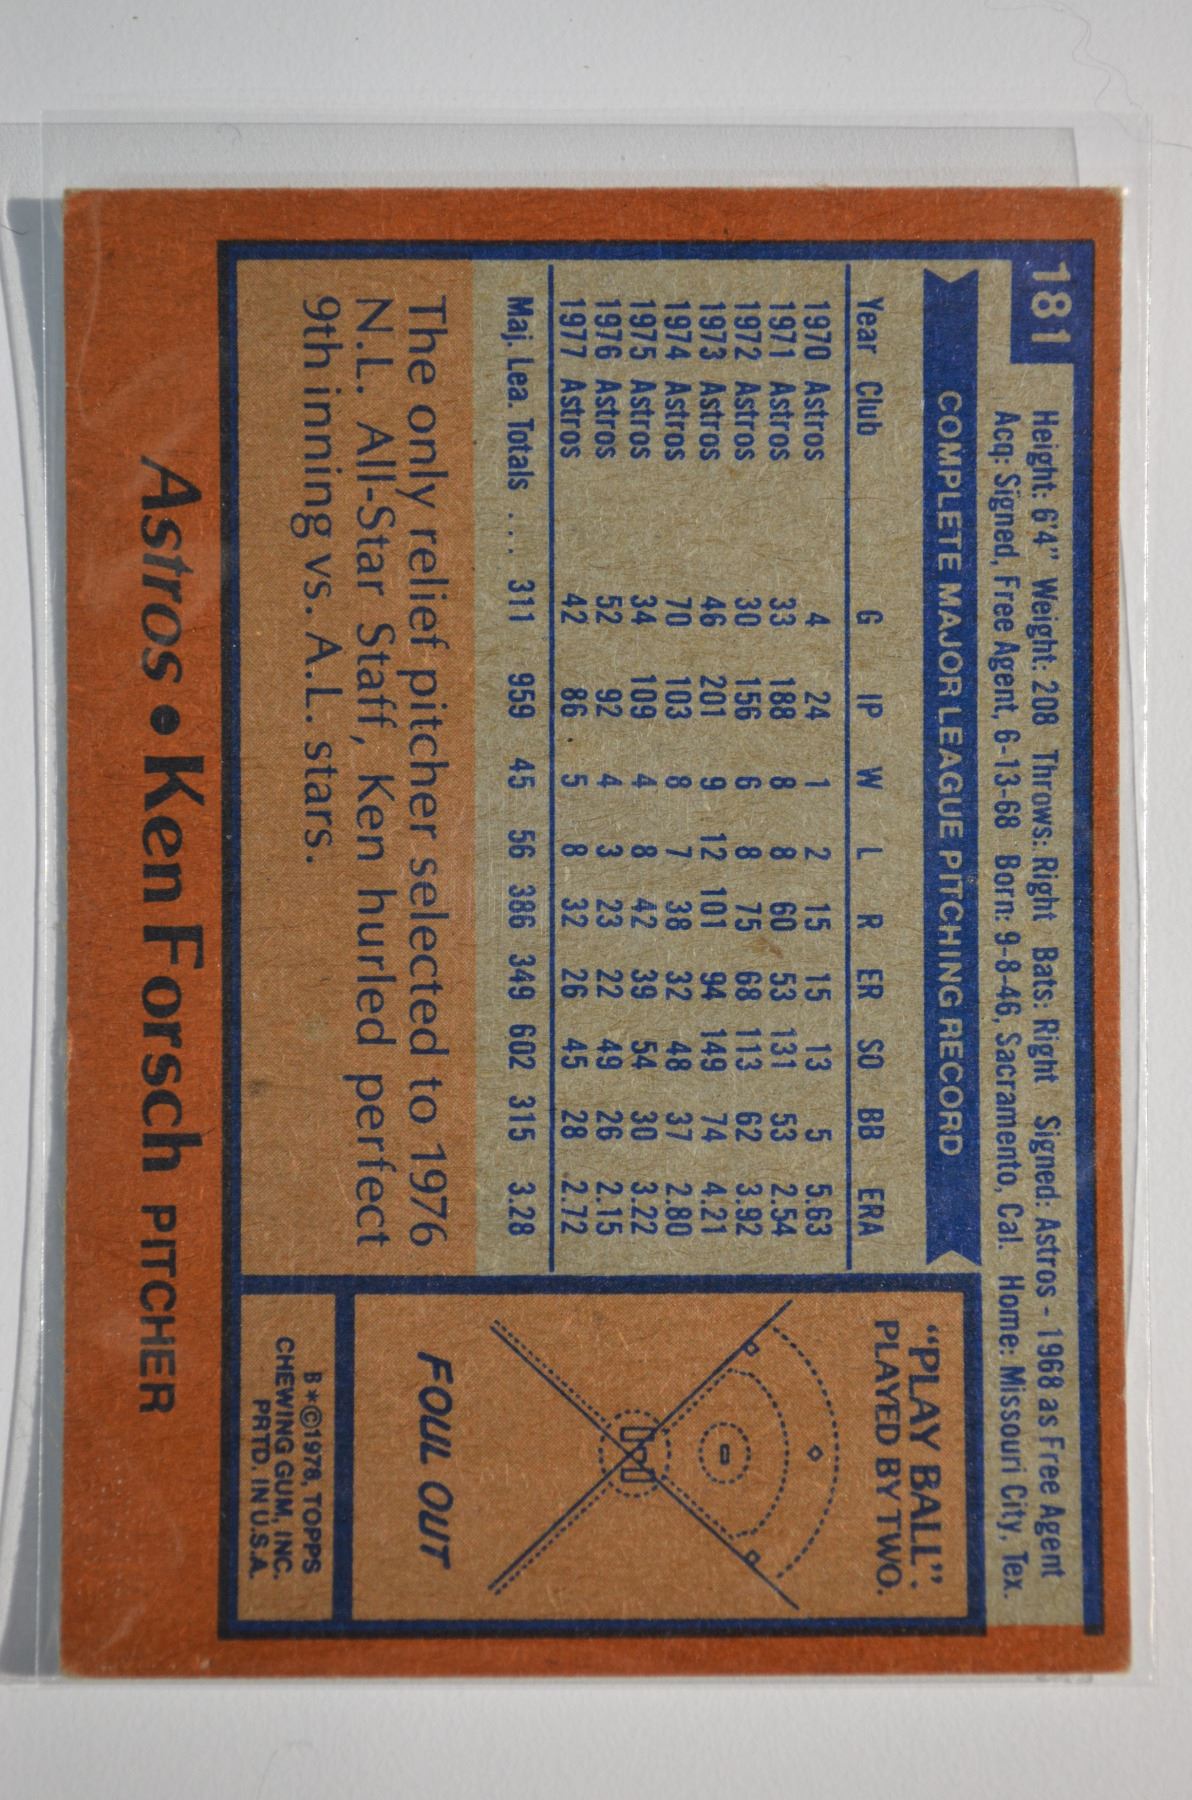 181
Height: 6'4" Weight: 208 Throws: Right Bats: Right Signed: Astros - 1968 as Free Agent
Acq: Signed, Free Agent, 6-13-68 Born: 9-8-46, Sacramento, Cal. Home: Missouri City, Tex.
COMPLETE MAJOR LEAGUE PITCHING RECORD
Year Club G IP W L R ER SO BB ERA
1970 Astros 4 24 1 2 15 15 13 5 5.63
1971 Astros 33 188 8 8 60 53 131 53 2.54
1972 Astros 30 156 6 8 75 68 113 62 3.92
1973 Astros 46 201 9 12 101 94 149 74 4.21
1974 Astros 70 103 8 7 38 32 48 37 2.80
1975 Astros 34 109 4 8 42 39 54 30 3.22
1976 Astros 52 92 4 3 23 22 49 26 2.15
1977 Astros 42 86 5 8 32 26 45 28 2.72
Maj. Lea. Totals . . . 311 959 45 56 386 349 602 315 3.28
The only relief pitcher selected to 1976
N.L. All-Star Staff, Ken hurled perfect
9th inning vs. A.L. stars.
"PLAY BALL":
PLAYED BY TWO.
FOUL OUT
B*©1978, TOPPS
CHEWING GUM, INC.
PRTD. IN U.S.A.
Astros • Ken Forsch PITCHER